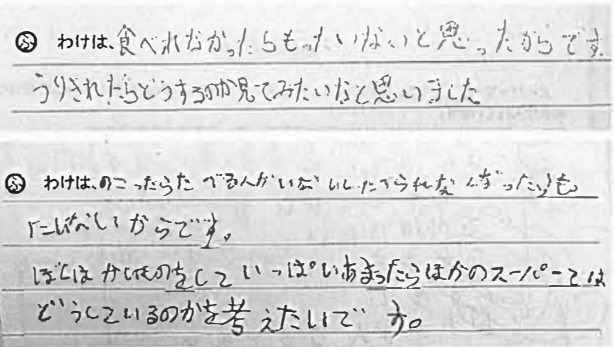 ふ わけは、食べれなかったらもったいないと思ったからです
うりきれたらどうするのか見てみたいなと思いました
ふ わけは、のこったらたべる人がいないしたべられなくなったらも
たいないからです。
ぼくはかいものをしていっぱいあまったらほかのスーパーでは
どうしているのかを考えたいです。